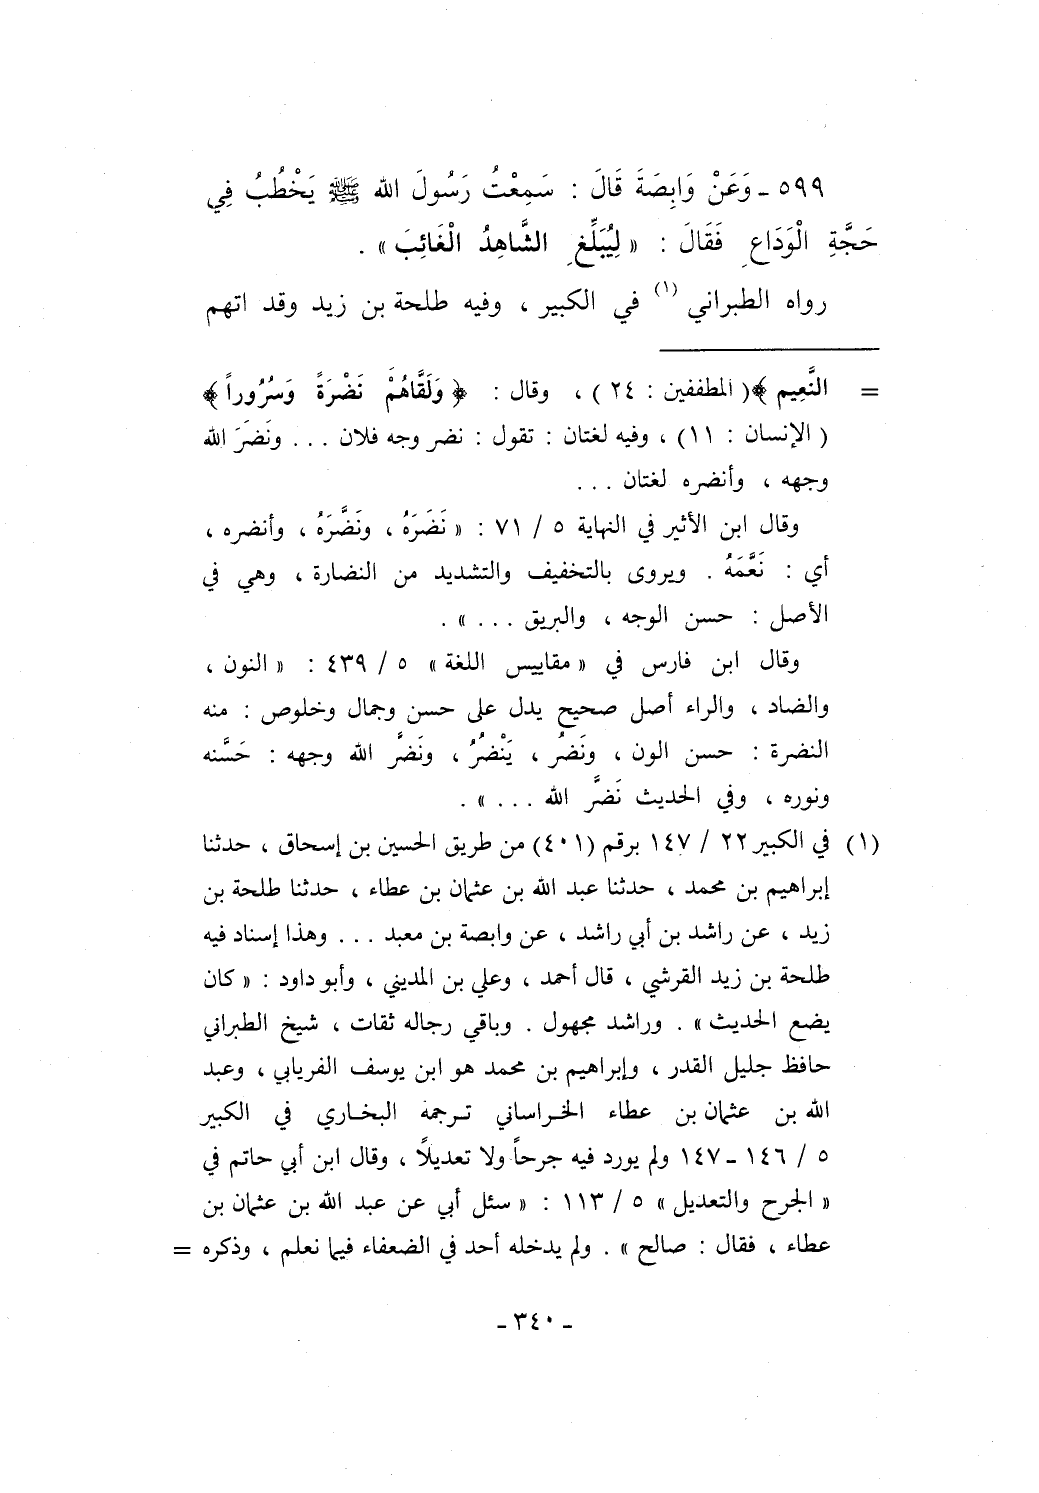 ٥٩٩ ـ وَعَنْ وَابِصَةَ قَالَ : سَمِعْتُ رَسُولَ الله ﷺ يَخْطُبُ فِي
حَجَّةِ الْوَدَاعِ فَقَالَ : « لِيُبَلِّغِ الشَّاهِدُ الْغَائِبَ » .
رواه الطبراني (١) في الكبير ، وفيه طلحة بن زيد وقد اتهم
= النَّعِيمِ ﴾( المطففين : ٢٤ ) ، وقال : ﴿ وَلَقَّاهُمْ نَضْرَةً وَسُرُوراً ﴾
( الإنسان : ١١) ، وفيه لغتان : تقول : نضر وجه فلان ... ونَضَرَ الله
وجهه ، وأنضره لغتان ...
وقال ابن الأثير في النهاية ٥ / ٧١ : « نَضَرَهُ ، ونَضَّرَهُ ، وأنضره ،
أي : نَعَّمَهُ . ويروى بالتخفيف والتشديد من النضارة ، وهي في
الأصل : حسن الوجه ، والبريق ... » .
وقال ابن فارس في « مقاييس اللغة » ٥ / ٤٣٩ : « النون ،
والضاد ، والراء أصل صحيح يدل على حسن وجمال وخلوص : منه
النضرة : حسن الون ، ونَضُرَ ، يَنْضُرُ ، ونَضَّر الله وجهه : حَسَّنه
ونوره ، وفي الحديث نَضَّر الله ... » .
(١) في الكبير ٢٢ / ١٤٧ برقم (٤٠١) من طريق الحسين بن إسحاق ، حدثنا
إبراهيم بن محمد ، حدثنا عبد الله بن عثمان بن عطاء ، حدثنا طلحة بن
زيد ، عن راشد بن أبي راشد ، عن وابصة بن معبد ... وهذا إسناد فيه
طلحة بن زيد القرشي ، قال أحمد ، وعلي بن المديني ، وأبو داود : « كان
يضع الحديث » . وراشد مجهول . وباقي رجاله ثقات ، شيخ الطبراني
حافظ جليل القدر ، وإبراهيم بن محمد هو ابن يوسف الفريابي ، وعبد
الله بن عثمان بن عطاء الخراساني ترجمه البخاري في الكبير
٥ / ١٤٦ ـ ١٤٧ ولم يورد فيه جرحاً ولا تعديلاً ، وقال ابن أبي حاتم في
« الجرح والتعديل » ٥ / ١١٣ : « سئل أبي عن عبد الله بن عثمان بن
عطاء ، فقال : صالح » . ولم يدخله أحد في الضعفاء فيما نعلم ، وذكره =
ـ ٣٤٠ ـ